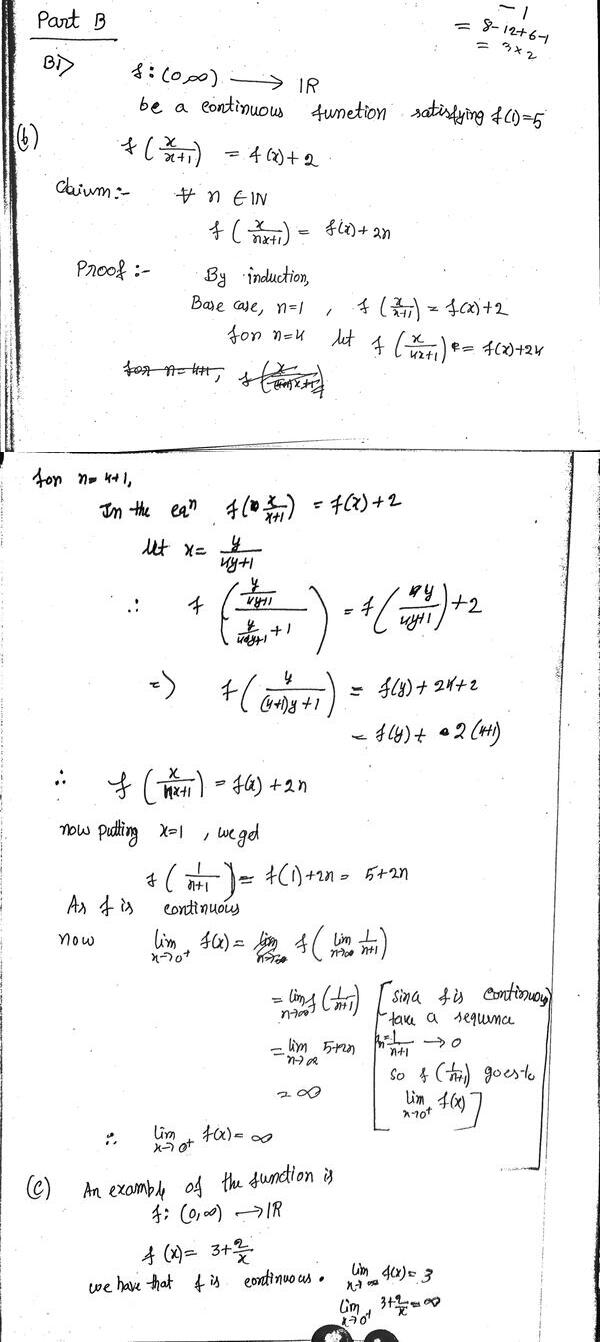 Part B
- 1
= 8-12+6-1
= 3×2
B1> f: (0,∞) → IR
be a continuous function satisfying f(1)=5
(b) f(x/(x+1)) = f(x)+2
Claium:- ∀ n ∈ IN
f(x/(nx+1)) = f(x)+2n
Proof:- By induction,
Base case, n=1, f(x/(x+1)) = f(x)+2
for n=k let f(x/(kx+1)) = f(x)+2k
for n=k+1, f(x/((k+1)x+1))
for n=k+1,
In the eqn f(x/(x+1)) = f(x)+2
let x = y/(ky+1)
∴ f((y/(ky+1))/(y/(ky+1)+1)) = f(y/(ky+1))+2
=> f(y/((k+1)y+1)) = f(y)+2k+2
= f(y)+2(k+1)
∴ f(x/(nx+1)) = f(x)+2n
now putting x=1, we get
f(1/(n+1)) = f(1)+2n = 5+2n
As f is continuous
now lim x→0+ f(x) = lim n→∞ f(lim n→∞ 1/(n+1))
= lim n→∞ f(1/(n+1)) [since f is continuous
take a sequence
= lim n→∞ 5+2n 1/(n+1) → 0
= ∞ so f(1/(n+1)) goes to
lim x→0+ f(x)]
∴ lim x→0+ f(x) = ∞
(c) An example of the function is
f: (0,∞) → IR
f(x) = 3+2/x
we have that f is continuous. lim x→∞ f(x) = 3
lim x→0+ 3+2/x = ∞